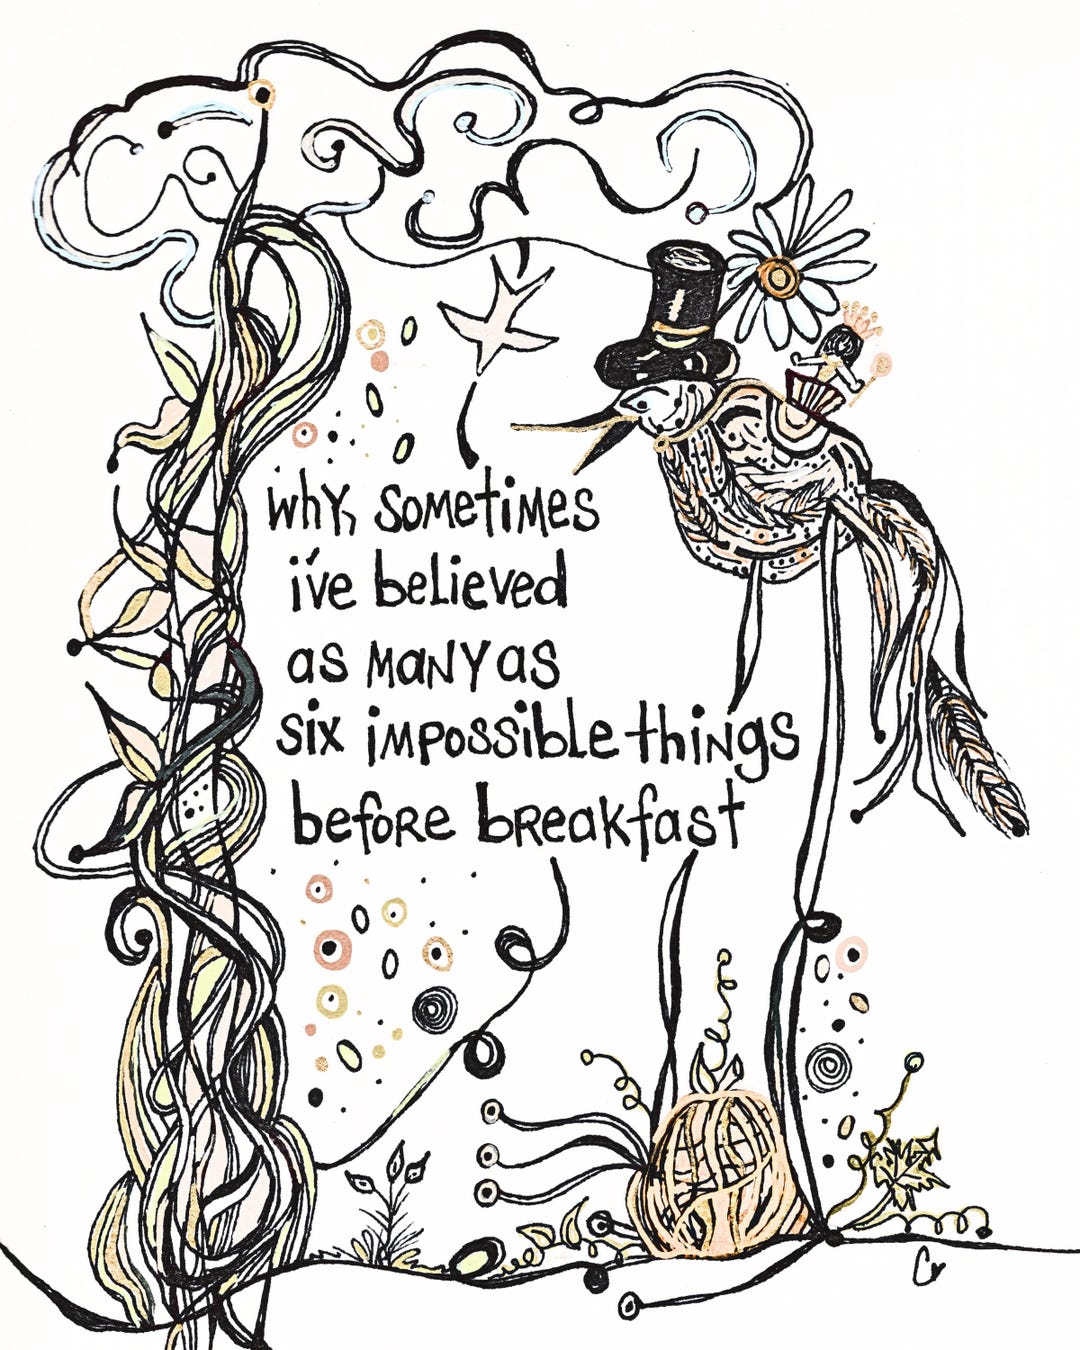 whY, SOMetiMES
i've beLieved
as MANY as
six iMpossible thiNgs
before bReakfast
Cr